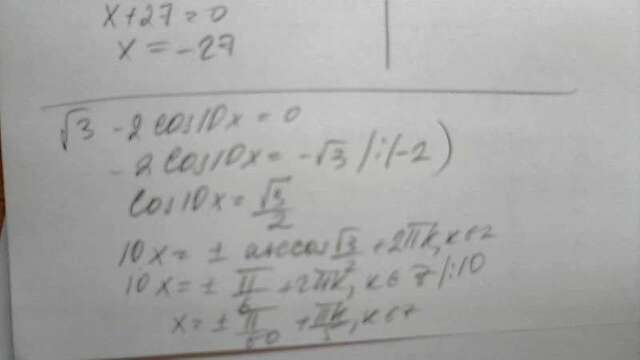 x+27=0
x=-27
√3 -2cos10x=0
-2cos10x=-√3 /:(-2)
cos10x=√3/2
10x=± arccos √3/2 +2πk, k∈z
10x=± π/6 +2πk, k∈z /:10
x=± π/60 + πk/5, k∈z